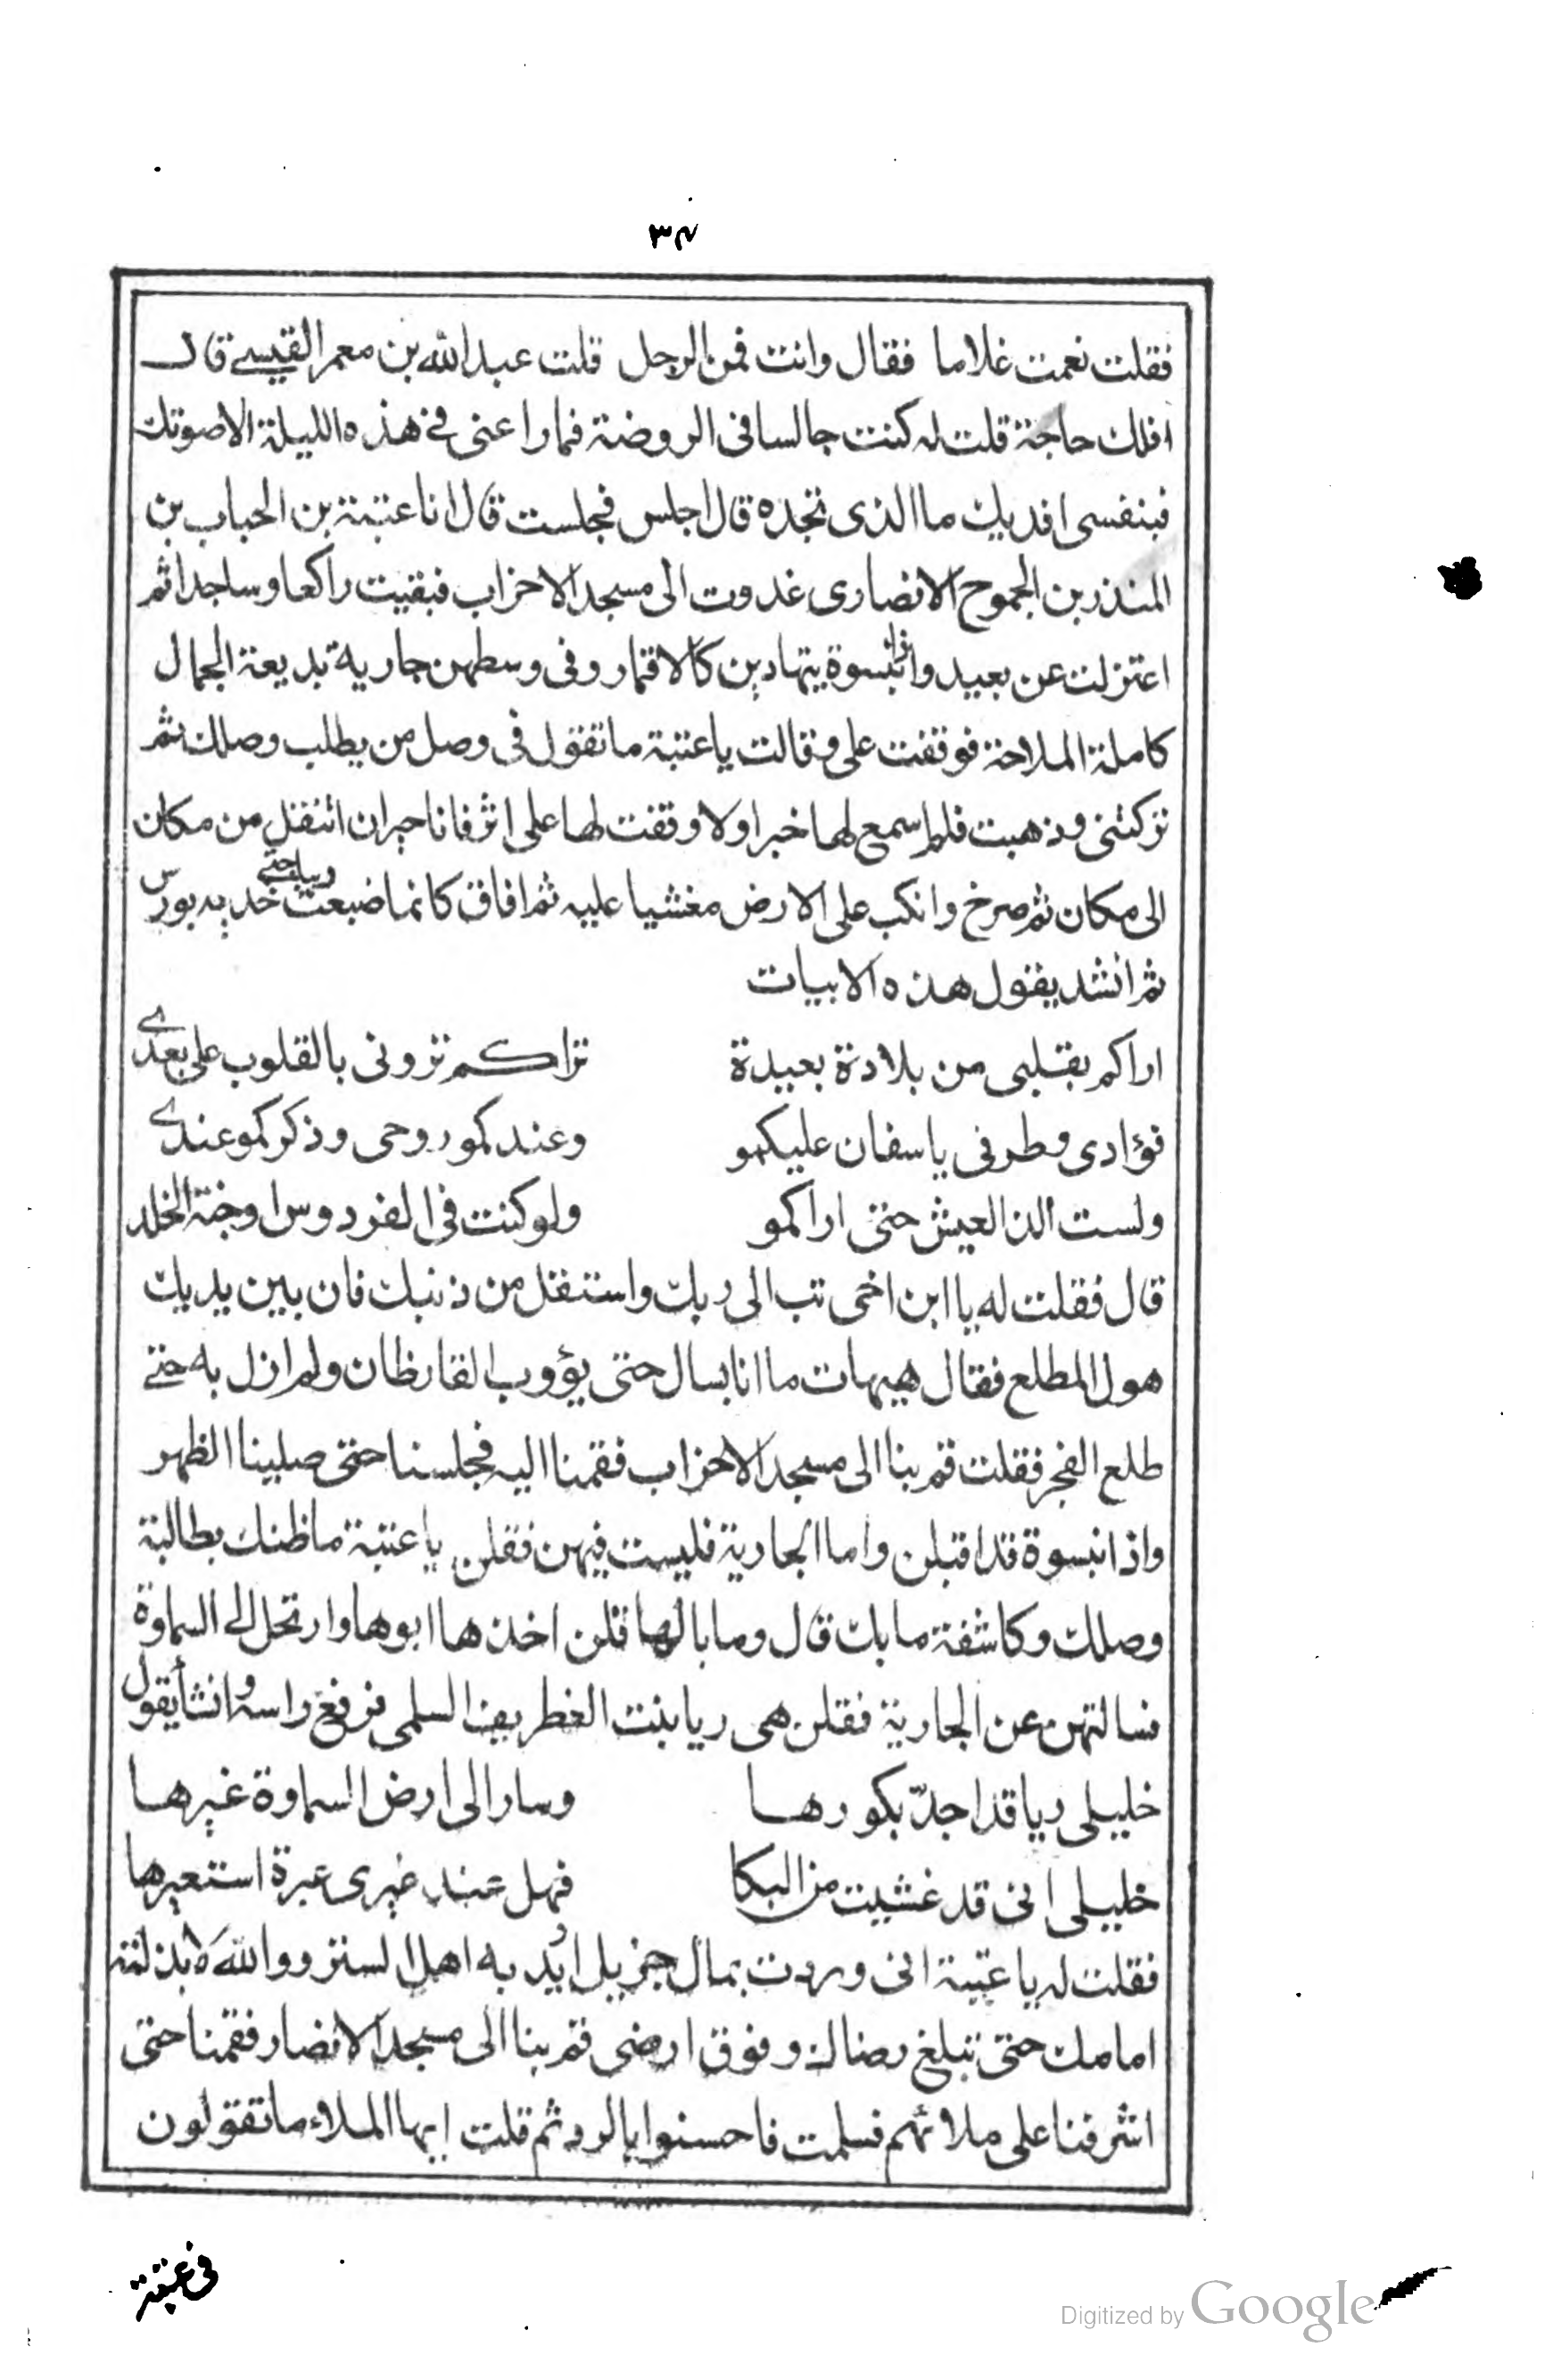 ٣٤
فقلت نعمت غلاما فقال وانت فمن الرجل قلت عبد الله بن معمر القيسے قال
افلك حاجة قلت له كنت جالسا فى الروضة فما راعنى فے هذه الليلة الا صوتك
فبنفسى افديك ما الذى تجده قال اجلس فجلست قال انا عتبة بن الحباب بن
المنذر بن الجموح الانصارى غدوت الى مسجد الاحزاب فبقيت راكعا وساجدا ثم
اعتزلت عن بعيد واذا بنسوة يتهادين كالاقمار وفى وسطهن جارية بديعة الجمال
كاملة الملاحة فوقفت على وقالت يا عتبة ما تقول فى وصل من يطلب وصلك ثم
تركتنى وذهبت فلم اسمع لها خبرا ولا وقفت لها على اثر فانا حيران انتقل من مكان
الى مكان ثم صرخ وانكب على الارض مغشيا عليه ثم افاق كانما ضبعت ديباجتے خديه بورس
ثم انشد يقول هذه الابيات
اراكم بقلبى من بلادة بعيدة تراكم ترونى بالقلوب على بعدے
فؤادى وطرفى ياسفان عليكمو وعندكمو روحى وذكركمو عندے
ولست الذ العيش حتى اراكمو ولو كنت فى الفردوس او جنة الخلد
قال فقلت له يا ابن اخى تب الى ربك واستقل من ذنبك فان بين يديك
هول المطلع فقال هيهات ما انا بسال حتى يؤوب القارظان ولم ازل به حتے
طلع الفجر فقلت قم بنا الى مسجد الاحزاب فقمنا اليه فجلسنا حتى صلينا الظهر
واذا نبسوة قد اقبلن واما الجارية فليست فيهن فقلن يا عتبة ما ظنك بطالبة
وصلك وكاشفة ما بك قال وما بالها قلن اخذها ابوها وارتحل الے السماوة
فسالتهن عن الجارية فقلن هى ريا بنت الغطريف السلمى فرفع راسه وانشأ يقول
خليلى ريا قد اجدّ بكورها وسار الى ارض السماوة غيرها
خليلى انى قد غشيت من البكا فهل عند غيرى عبرة استعيرها
فقلت له يا عتبة انى وردت بمال جزيل اريد به اهل الستر ووالله لابذلنه
امامك حتى تبلغ رضاك وفوق ارضى قم بنا الى مسجد الانصار فقمنا حتى
اشرفنا على ملائهم فسلمت فاحسنوا بالرد ثم قلت ايها الملاء ما تقولون
فى عتبة
Digitized by Google